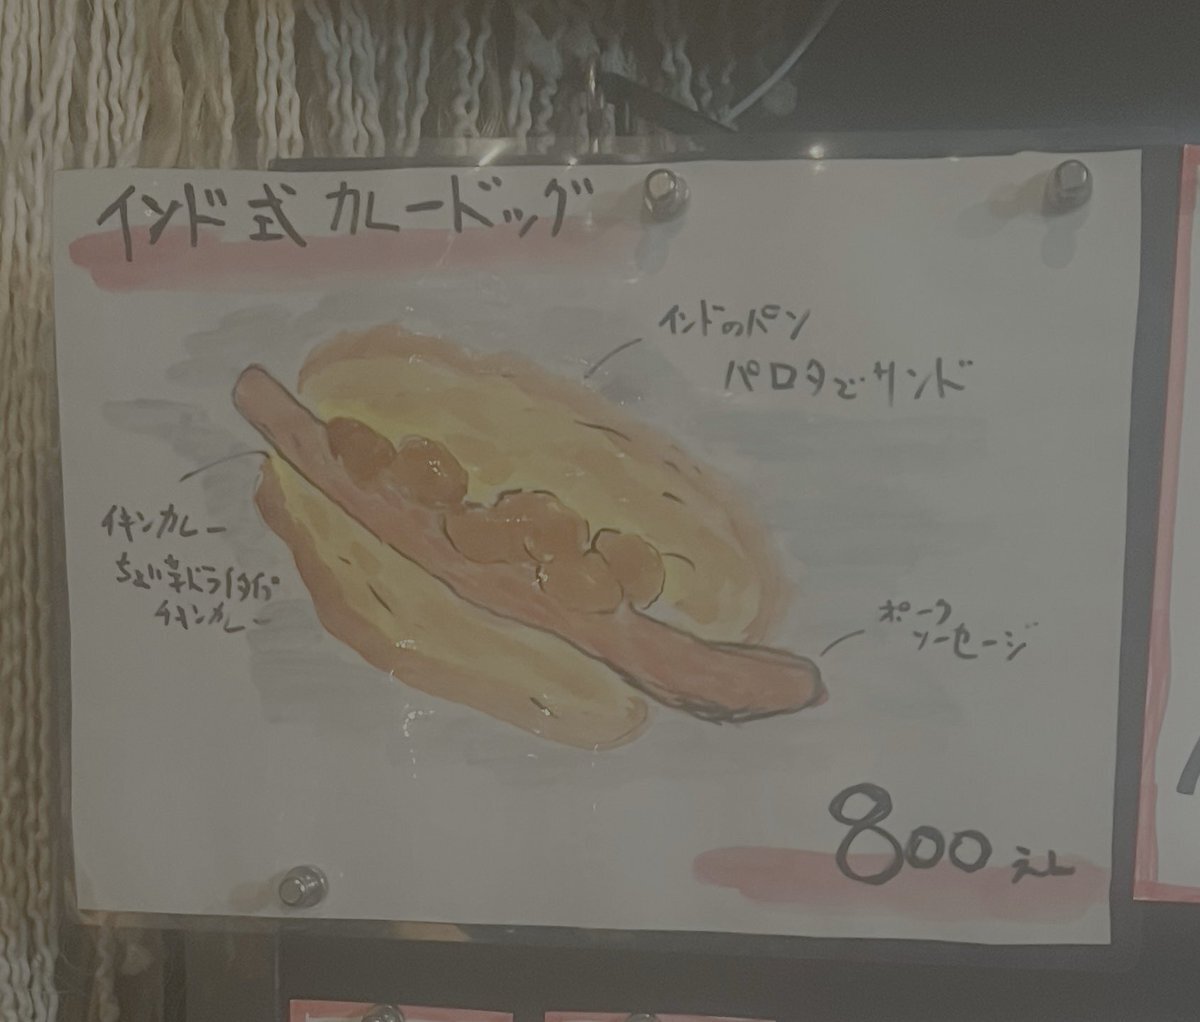 インド式カレードッグ
インドのパン
パロタでサンド
チキンカレー
ちょい辛ドライタイプ
チキンカレー
ポーク
ソーセージ
800えん